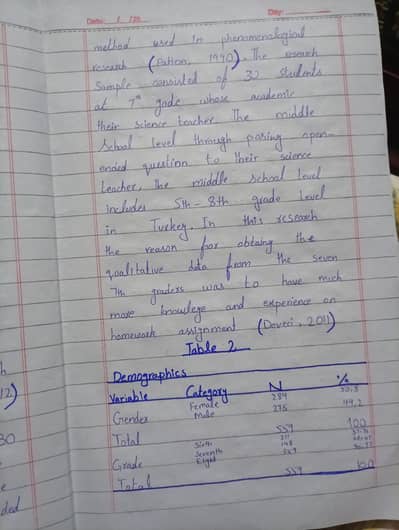 Date: 1/20
Day:
method used in phenomenological
research (Patton, 1990). The research
Sample consisted of 32 students
at 7th grade whose academic
their science teacher. The middle
School level through posing open-
ended question to their science
teacher. The middle school level
includes 5th - 8th grade level
in Turkey. In this research
the reason for obtaing the
qualitative data from the seven
7th graders was to have much
more knowlege and experience on
homework assignment (Deveci, 2011)
Table 2
Demographics
Variable Category N %
Gender Female 284
Male 275 49.2
Total 559 100
Grade Sixth 211
Seventh 148
Eight
Total 559 100
12)
30
e
ded